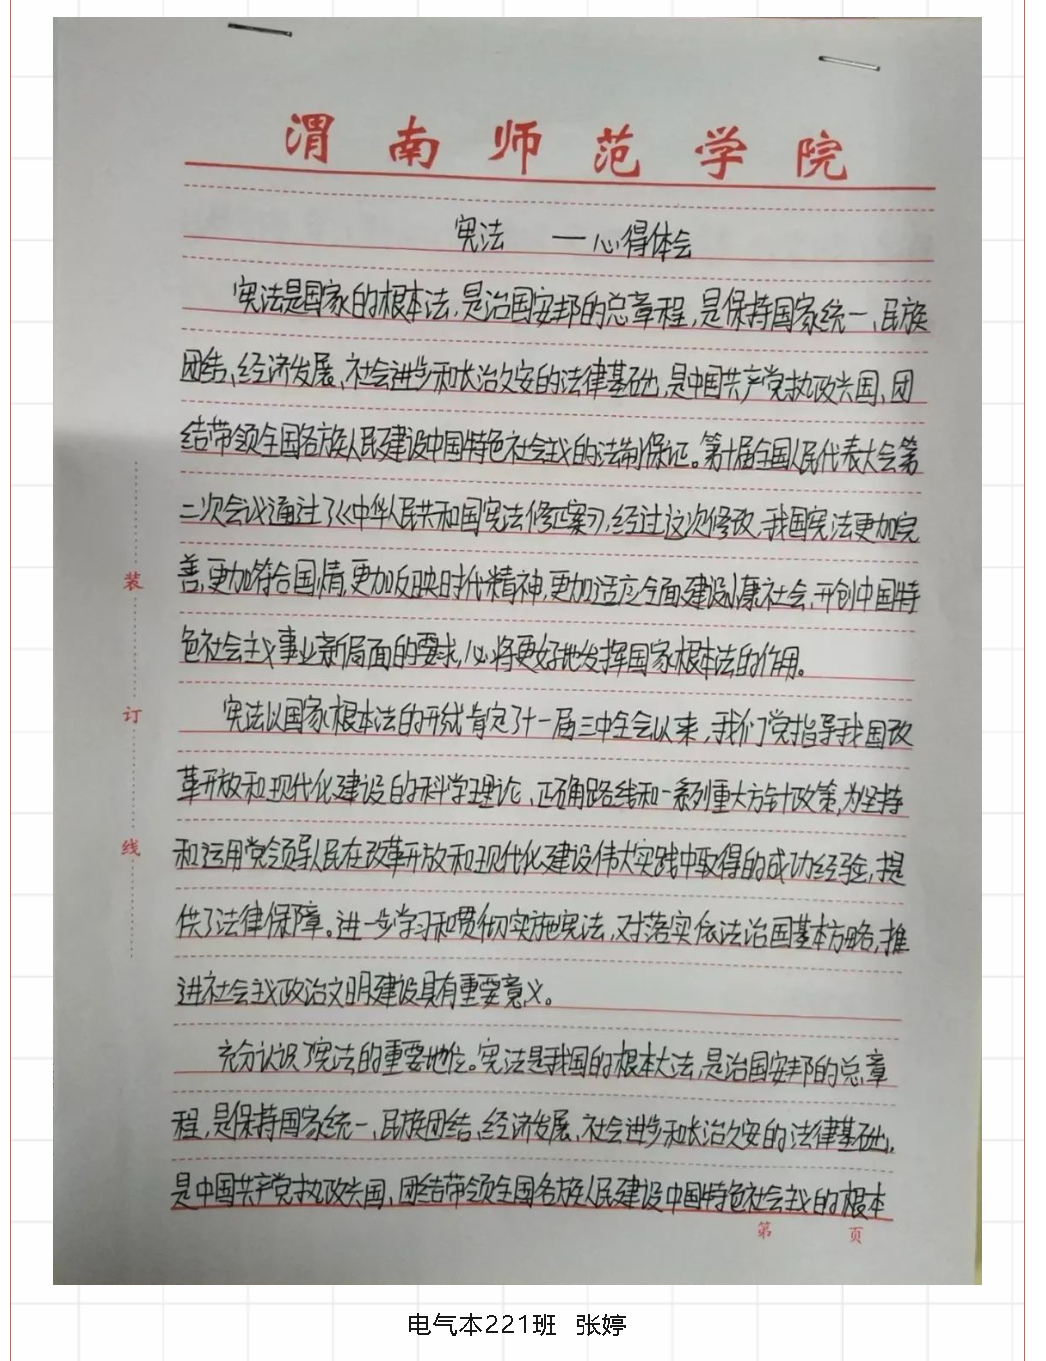 渭南师范学院
宪法 —心得体会
宪法是国家的根本法,是治国安邦的总章程,是保持国家统一、民族
团结、经济发展、社会进步和长治久安的法律基础,是中国共产党执政兴国、团
结带领全国各族人民建设中国特色社会主义的法制保证。第十届全国人民代表大会第
二次会议通过了《中华人民共和国宪法修正案》,经过这次修改,我国宪法更加完
善,更加符合国情,更加反映时代精神,更加适应全面建设小康社会、开创中国特
色社会主义事业新局面的要求,必将更好地发挥国家根本法的作用。
宪法以国家根本法的形式肯定了十一届三中全会以来,我们党指导我国改
革开放和现代化建设的科学理论、正确路线和一系列重大方针政策,为坚持
和运用党领导人民在改革开放和现代化建设伟大实践中取得的成功经验,提
供了法律保障。进一步学习和贯彻实施宪法,对落实依法治国基本方略,推
进社会主义政治文明建设具有重要意义。
充分认识了宪法的重要地位。宪法是我国的根本大法,是治国安邦的总章
程,是保持国家统一、民族团结、经济发展、社会进步和长治久安的法律基础,
是中国共产党执政兴国、团结带领全国各族人民建设中国特色社会主义的根本
装
订
线
第 页
电气本221班 张婷